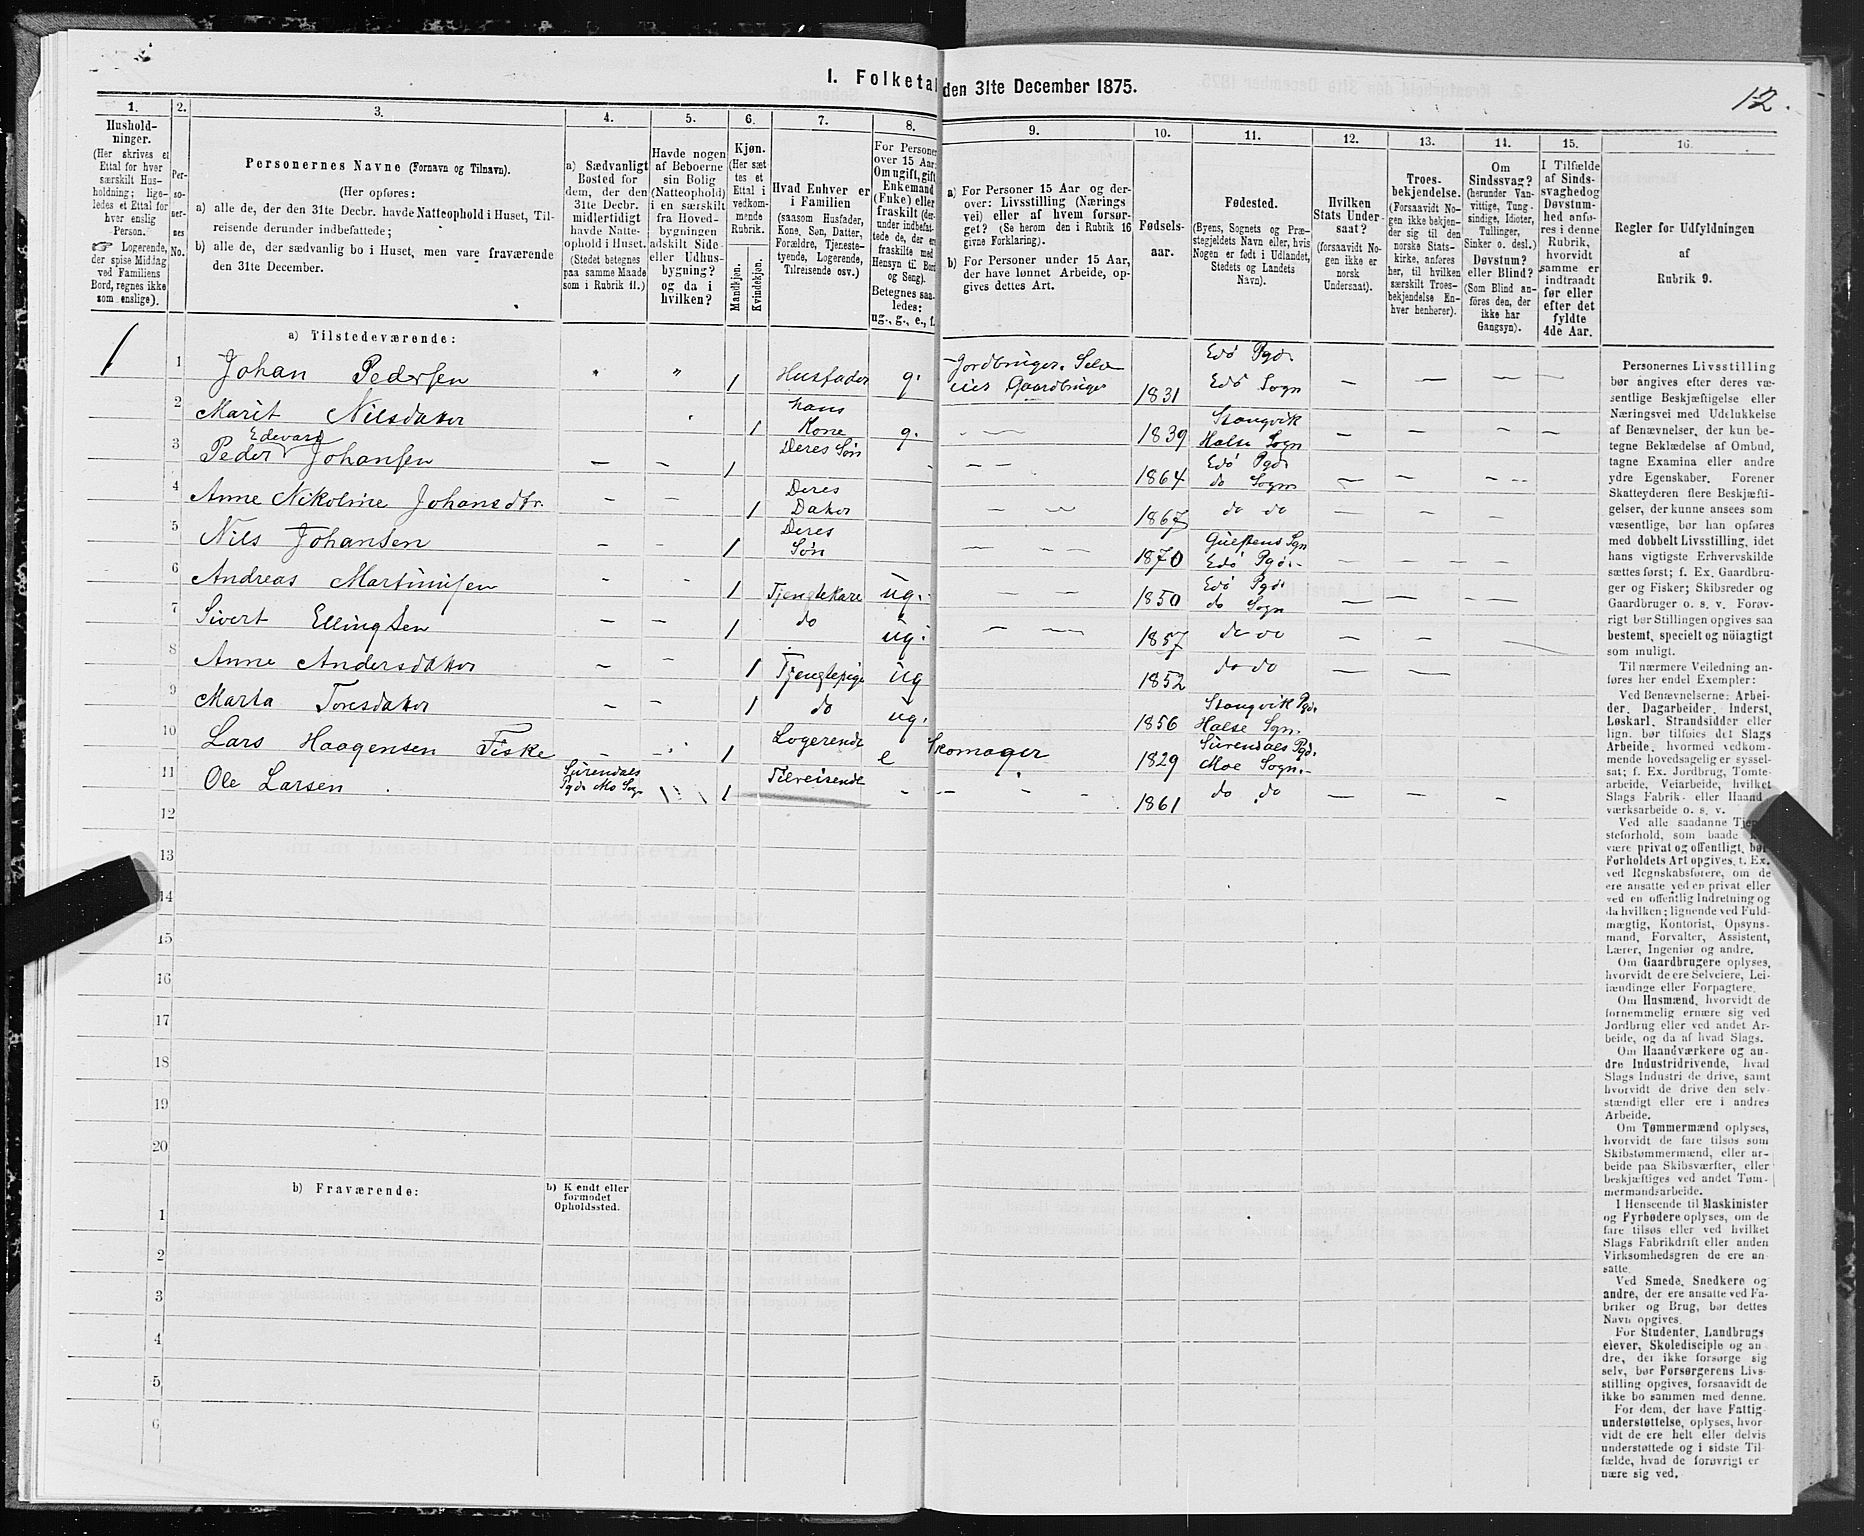 I. Folketal den 31te December 1875.
12.
1.
Hushold-
ninger.
(Her skrives et
Ettal for hver
særskilt Hus-
holdning; lige-
ledes et Ettal for
hver enslig
Person.
Logerende,
der spise Middag
ved Familiens
Bord, regnes ikke
som enslige).
2.
Per-
so-
ner-
nes
No.
3.
Personernes Navne (Fornavn og Tilnavn).
(Her opføres:
a) alle de, der den 31te Decbr. havde Natteophold i Huset, Til-
reisende derunder indbefattede;
b) alle de, der sædvanlig bo i Huset, men vare fraværende
den 31te December.
4.
a) Sædvanligt
Bosted for
dem, der den
31te Decbr.
midlertidigt
havde Natte-
ophold i Huset.
(Stedet betegnes
paa samme Maade
som i Rubrik 11.)
5.
Havde nogen
af Beboerne
sin Bolig
(Natteophold)
i en særskilt
fra Hoved-
bygningen
adskilt Side-
eller Udhus-
bygning?
og da i
hvilken?
6.
Kjøn.
(Her sæt
tes et
Ettal i
vedkom-
mende
Rubrik.
Mandkjøn.
Kvindekjøn.
7.
Hvad Enhver er
i Familien
(saasom Husfader,
Kone, Søn, Datter,
Forældre, Tjeneste-
tyende, Logerende,
Tilreisende osv.)
8.
For Personer
over 15 Aar:
Om ugift, gift,
Enkemand
(Enke) eller
fraskilt (der-
under indbefat-
tede de, der er
fraskilte med
Hensyn til Bord
og Seng).
Betegnes saa-
ledes:
ug., g., e., f.
9.
a) For Personer 15 Aar og der-
over: Livsstilling (Nærings
vei) eller af hvem forsør-
get? (Se herom den i Rubrik 16
givne Forklaring).
b) For Personer under 15 Aar,
der have lønnet Arbeide, op-
gives dettes Art.
10.
Fødsels-
aar.
11.
Fødested.
(Byens, Sognets og Præ-
stegjeldets Navn eller, hvis
Nogen er født i Udlandet,
Stedets og Landets
Navn).
12.
Hvilken
Stats Under-
saat?
(forsaavidt No-
gen ikke er
norsk
Undersaat).
13.
Troes-
bekjendelse.
(Forsaavidt No-
gen ikke bekjen-
der sig til den
norske Stats-
kirke, anføres
her, til hvilken
særskilt Troes-
bekjendelse En-
hver henhører).
14.
Om
Sindssvag?
(herunder Van-
vittige, Tung-
sindige, Idioter,
Tullinger,
Sinker o. desl.)
Døvstum?
eller Blind?
(Som Blind an-
føres den, der
ikke har
Gangsyn).
15.
I Tilfælde
af Sinds-
svaghed og
Døvstum-
hed anfø-
res i denne
Rubrik,
hvorvidt
samme er
indtraadt
før eller
efter det
fyldte
4de Aar.
16.
Regler for Udfyldningen
af
Rubrik 9.
a) Tilstedeværende:
1
1 Johan Pedersen " " 1 Husfader g. Jordbruger. Selv 1831 Edø Pgd.
eier Gaardbruger Edø Sogn
2 Marit Nilsdatter 1 hans Kone g. 1839 Stangvik
Halse Sogn
Edevard
3 Peder Johansen 1 Deres Søn 1864 Edø Pgd.
do Sogn
4 Anne Nikoline Johansdtr. 1 Deres Datter 1867 do do
5 Nils Johansen 1 Deres Søn 1870
Edø Pgd.
6 Andreas Martinusen 1 Tjenstekare ug. 1850 Edø Pgd.
do Sogn
7 Sivert Ellingsen 1 do ug. 1857 do do
8 Anne Andersdatter 1 Tjenstepige ug 1852 do do
9 Marta Toresdatter 1 do ug. 1856 Stangvik Pgd.
Halse Sgn.
10 Lars Haagensen Fiske 1 Logerende e Skomager 1829 Surendals Pgd.
Moe Sogn
11 Ole Larsen Surendals Pgd. Mo Sogn 1 Tilreisende 1861 do do
12
13
14
15
16
17
18
19
20
b) Fraværende:
b) Kendt eller
formodet
Opholdssted.
1
2
3
4
5
6
Personernes Livsstilling
bør angives efter deres væ-
sentlige Beskjæftigelse eller
Næringsvei med Udelukkelse
af Benævnelser, der kun be-
tegne Beklædelse af Ombud,
tagne Examina eller andre
ydre Egenskaber. Forener
Skatteyderen flere Beskjæfti-
gelser, der kunne ansees som
væsentlige, bør han opføres
med dobbelt Livsstilling, idet
hans vigtigste Erhvervskilde
sættes først; f. Ex. Gaardbru-
ger og Fisker; Skibsreder og
Gaardbruger o. s. v. Forøv-
rigt bør Stillingen opgives saa
bestemt, specielt og nöiagtigt
som muligt.
Til nærmere Veiledning an-
føres her endel Exempler:
Ved Benævnelserne: Arbei-
der, Dagarbeider, Inderst,
Løskarl, Strandsidder eller
lign. bør tilføies det Slags
Arbeide, hvormed vedkom-
mende hovedsagelig er syssel-
sat; f. Ex. Jordbrug, Tomte-
arbeide, Veiarbeide, hvilket
Slags Fabrik- eller Haand-
værksarbeide o. s. v.
Ved alle saadanne Tjene-
steforhold, som baade kan
være privat og offentligt, bør
Forholdets Art opgives, t. Ex.
ved Regnskabsførere, om de
ere ansatte ved en privat eller
ved en offentlig Indretning og
da hvilken; lignende ved Fuld-
mægtig, Kontorist, Opsyns-
mand, Forvalter, Assistent,
Lærer, Ingeniør og andre.
Om Gaardbrugere oplyses,
hvorvidt de ere Selveiere, Lei-
lændinge eller Forpagtere.
Om Husmænd, hvorvidt de
fornemmelig ernære sig ved
Jordbrug eller ved andet Ar-
beide, og da af hvad Slags.
Om Haandværkere og an-
dre Industridrivende, hvad
Slags Industri de drive, samt
hvorvidt de drive den selv-
stændigt eller ere i andres
Arbeide.
Om Tømmermænd oplyses,
hvorvidt de fare tilsøs som
Skibstømmermænd, eller ar-
beide paa Skibsværfter, eller
beskjæftiges ved andet Tøm-
mermandsarbeide.
I Henseende til Maskinister
og Fyrbødere oplyses, om de
fare tilsøs eller ved hvilket
Slags Fabrikdrift eller anden
Virksomhedsgren de ere an-
satte.
Ved Smede, Snedkere og
andre, der ere ansatte ved Fa-
briker og Brug, bør dettes
Navn opgives.
For Studenter, Landbrugs
elever, Skoledisciple og an
dre, der ikke forsørge sig
selv, bør Forsørgerens Livs-
stilling opgives, forsaavidt de
ikke bo sammen med denne.
For dem, der have Fattig-
understøttelse, oplyses, hvor-
vidt de ere helt eller delvis
understøttede og i sidste Til-
fælde, hvad de forøvrigt er
nære sig ved.